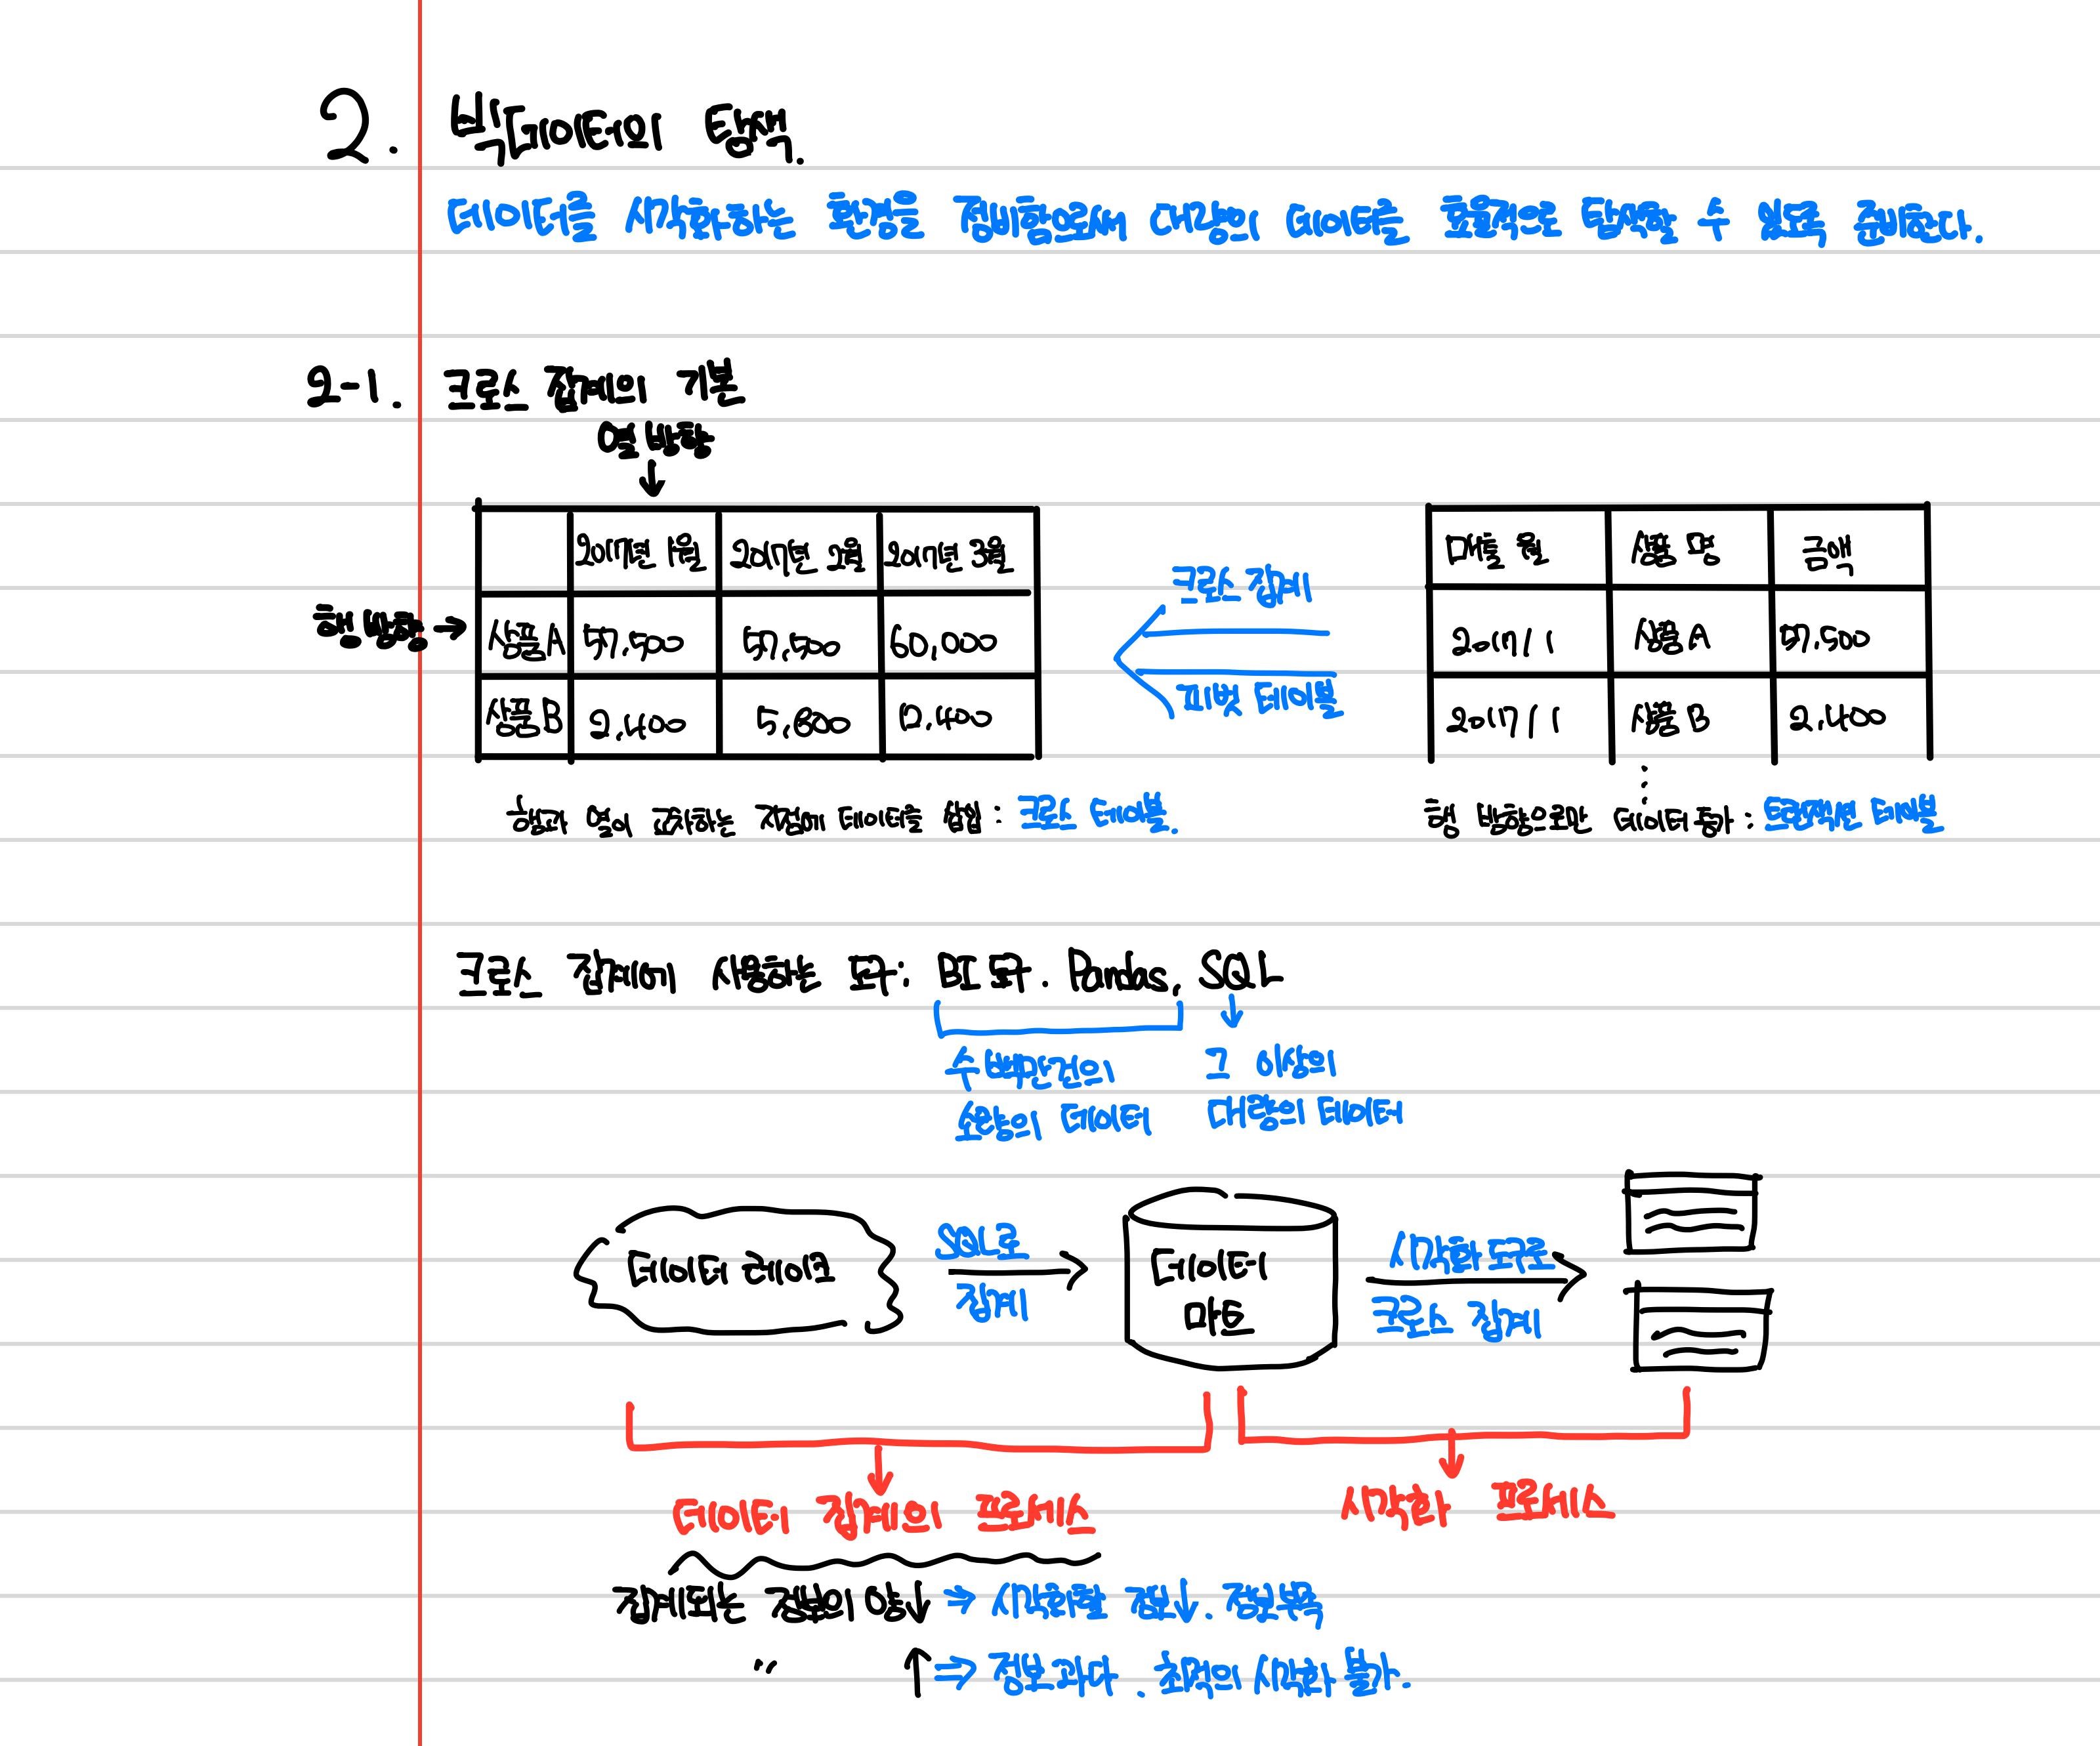 2. 빅데이터의 탐색.
데이터를 시각화하는 환경을 정비함으로서 대량의 데이터를 효율적으로 탐색할 수 있도록 준비한다.
2-1. 크로스 집계의 기본
열 방향
↓
2017년 1월 2017년 2월 2017년 3월
행 방향 → 상품A 57,500 57,500 60,000
상품B 2,400 5,800 12,400
크로스 집계
피벗 테이블
매출 월 상품 명 금액
2017/1 상품A 57,500
2017/1 상품B 2,400
⋮
행과 열이 교차하는 지점에 데이터를 삽입 : 크로스 테이블.
행 방향으로만 데이터 증가 : 트랜잭션 테이블
크로스 집계에 사용하는 도구: BI 도구. Pandas, SQL
수 백만건의
소량의 데이터
그 이상의
대량의 데이터
데이터 레이크
SQL로
집계
데이터
마트
시각화 도구로
크로스 집계
데이터 집계의 프로세스
시각화 프로세스
집계되는 정보의 양↓ ⇒ 시각화할 정보↓. 정보부족
〃 ↑ ⇒ 정보 과다. 최적의 시각화 불가.